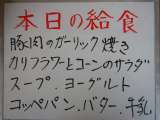 本日の給食
豚肉のガーリック焼き
カリフラワーとコーンのサラダ
スープ．ヨーグルト
コッペパン．バター．牛乳